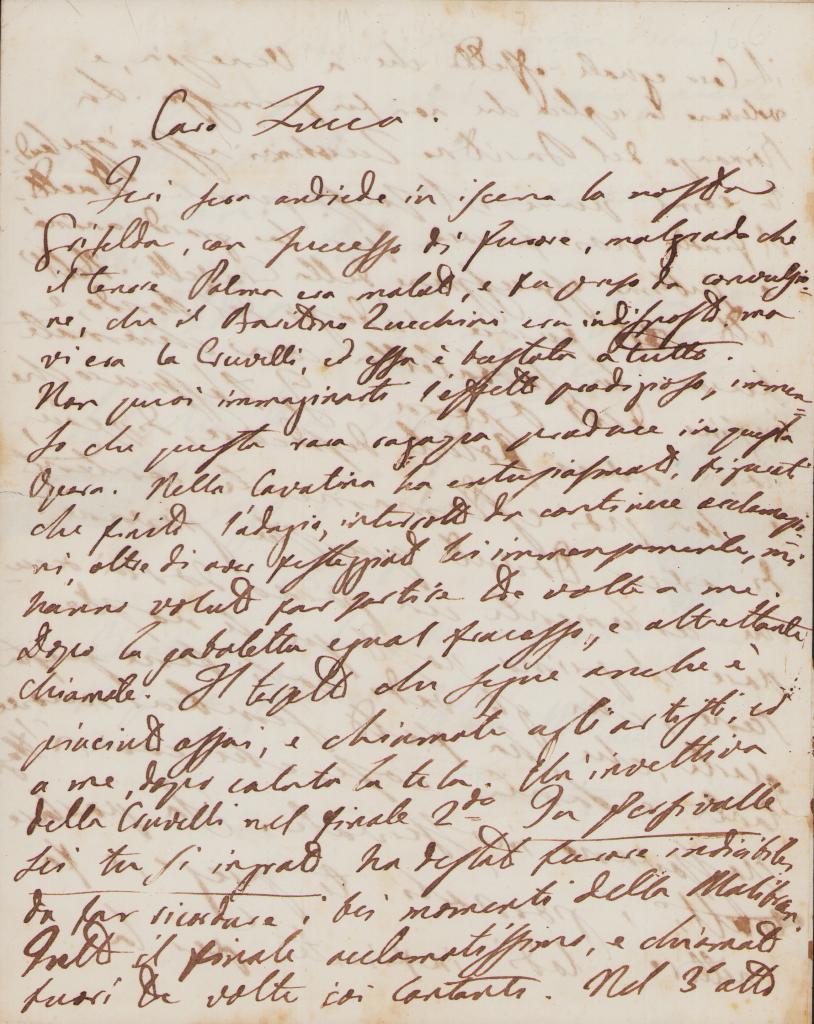 Caro Zucca.
Ieri sera andiede in iscena la nostra
Griselda, con successo di furore, malgrado che
il tenore Palma era malato, e fu preso da convulsio=
ne, che il Baritono Zucchini era indisposto, ma
vi era la Cruvelli, ed essa è bastata a tutto.
Non puoi immaginarti l'effetto prodigioso, immen=
so che questa rara ragazza produce in questa
Opera. Nella Cavatina ha entusiasmato, figurati
che finito l'adagio, interrotto da continue acclamazio=
ni, oltre di aver festeggiato lei immensamente, mi
hanno voluto far sortire tre volte a me.
Dopo la gabaletta egual fracasso, e altrettante
chiamate. Il terzetto che segue anche è
piaciuto assai, e chiamate agli artisti, ed
a me, dopo calata la tela. Un'invettiva
della Cruvelli nel finale 2.do Tu Persivalle
sei tu sì ingrato ha destato furore indicibile,
da far ricordare i bei momenti della Malibran.
Tutto il finale acclamatissimo, e chiamato
fuori tre volte coi Cantanti. Nel 3° atto